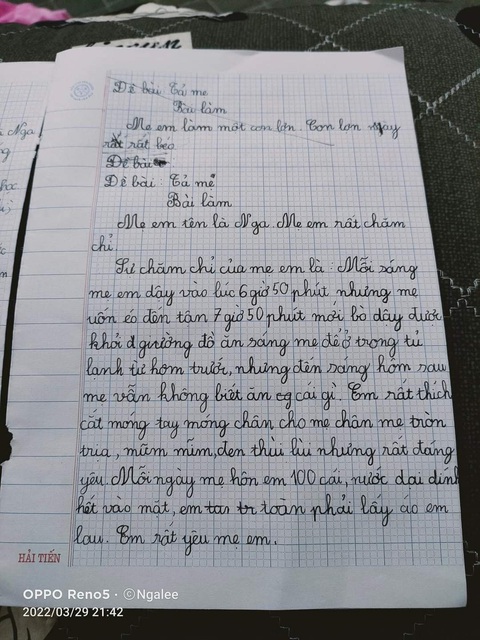 Đề bài: Tả mẹ
Bài làm
Mẹ em làm một con lợn. Con lợn này
rất béo
Đề bài
Đề bài: Tả mẹ
Bài làm
Mẹ em tên là Nga. Mẹ em rất chăm
chỉ.
Sự chăm chỉ của mẹ em là: Mỗi sáng
mẹ em dậy vào lúc 6 giờ 50 phút nhưng mẹ
uốn éo đến tận 7 giờ 50 phút mới bò dậy được
khỏi giường đồ ăn sáng mẹ để ở trong tủ
lạnh từ hôm trước, nhưng đến sáng hôm sau
mẹ vẫn không biết ăn cái gì. Em rất thích
cắt móng tay móng chân cho mẹ chân mẹ tròn
trịa, mũm mĩm, đen thùi lùi nhưng rất đáng
yêu. Mỗi ngày mẹ hôn em 100 cái, nước dãi dính
hết vào mặt, em toàn phải lấy áo em
lau. Em rất yêu mẹ em.
HẢI TIẾN
OPPO Reno5 · ©Ngalee
2022/03/29 21:42